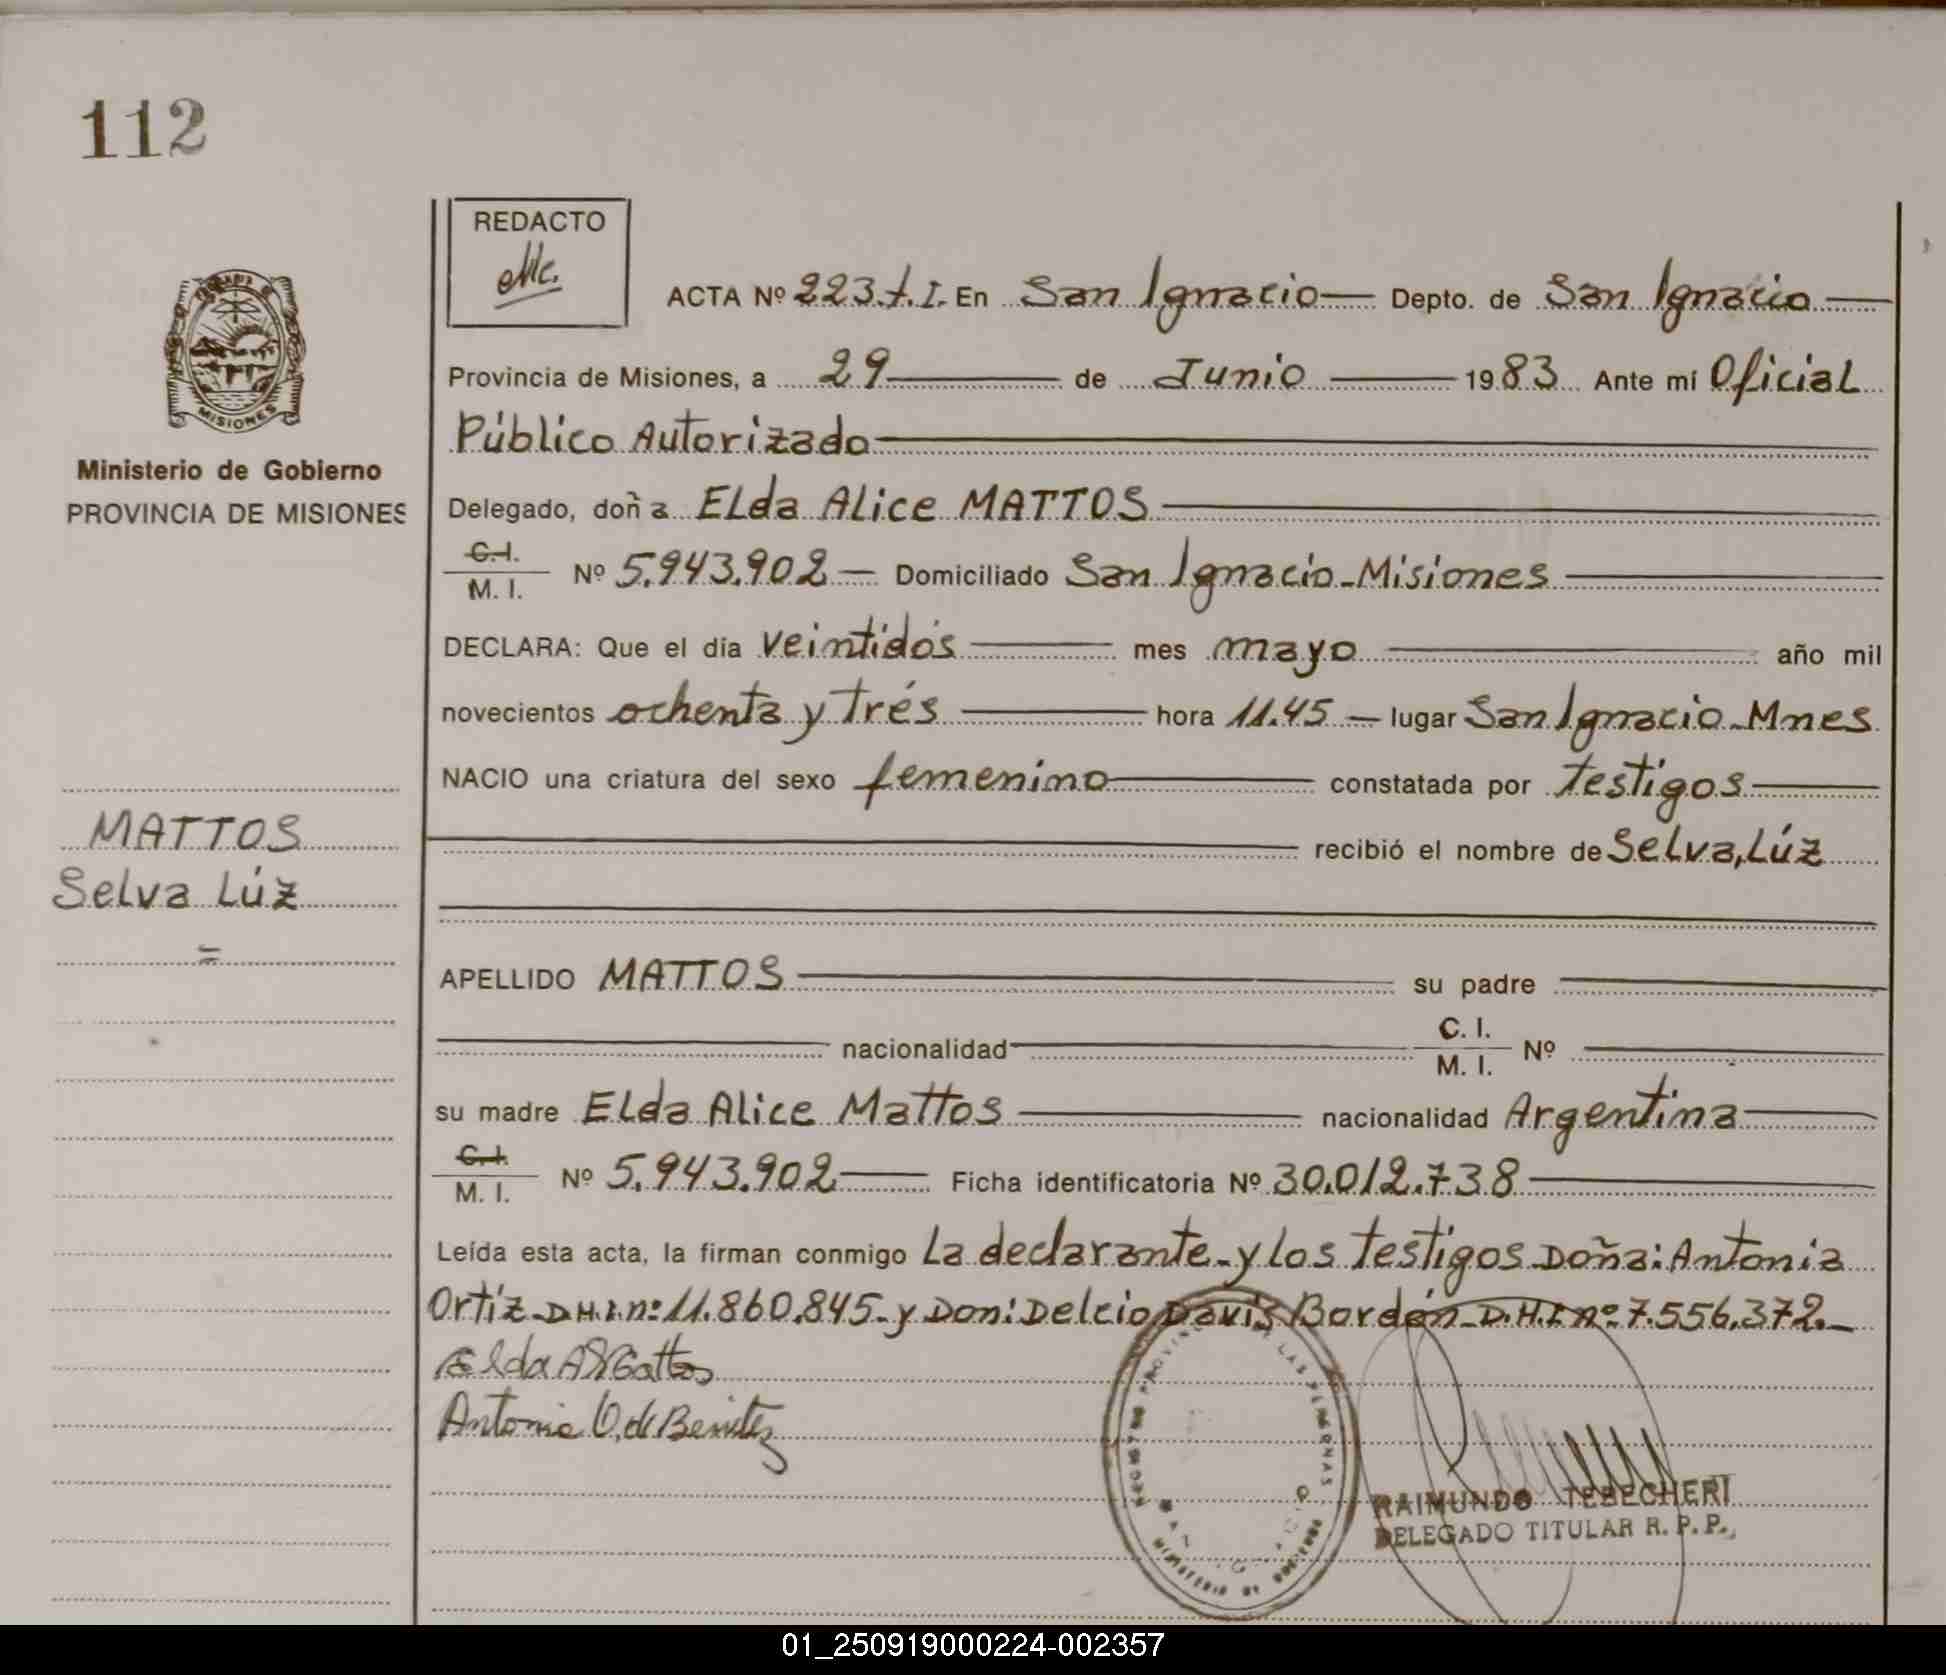 112
REDACTO
ACTA Nº 223.t.I. En San Ignacio Depto. de San Ignacio
Provincia de Misiones, a 29 de Junio 1983 Ante mí Oficial
Público Autorizado
Ministerio de Gobierno
PROVINCIA DE MISIONES
Delegado, doña Elda Alice MATTOS
C.I.
M.I. Nº 5.943.902 Domiciliado San Ignacio-Misiones
DECLARA: Que el día veintidós mes mayo año mil
novecientos ochenta y trés hora 11.45 lugar San Ignacio-Mnes
NACIO una criatura del sexo femenino constatada por testigos
recibió el nombre de Selva, Lúz
MATTOS
Selva Lúz
APELLIDO MATTOS su padre
nacionalidad C.I.
M.I. Nº
su madre Elda Alice Mattos nacionalidad Argentina
C.I.
M.I. Nº 5.943.902 Ficha identificatoria Nº 30.012.738
Leída esta acta, la firman conmigo La declarante-y los testigos Doña: Antonia
Ortíz-D.H.I.nº:11.860.845-y Don: Delcio Davis Bordón-D.H.I nº 7.556.372.-
Elda A Mattos
Antonia O. de Benitez
MISIONES
RAIMUNDO TEBECHERI
DELEGADO TITULAR R. P. P.
01_250919000224-002357